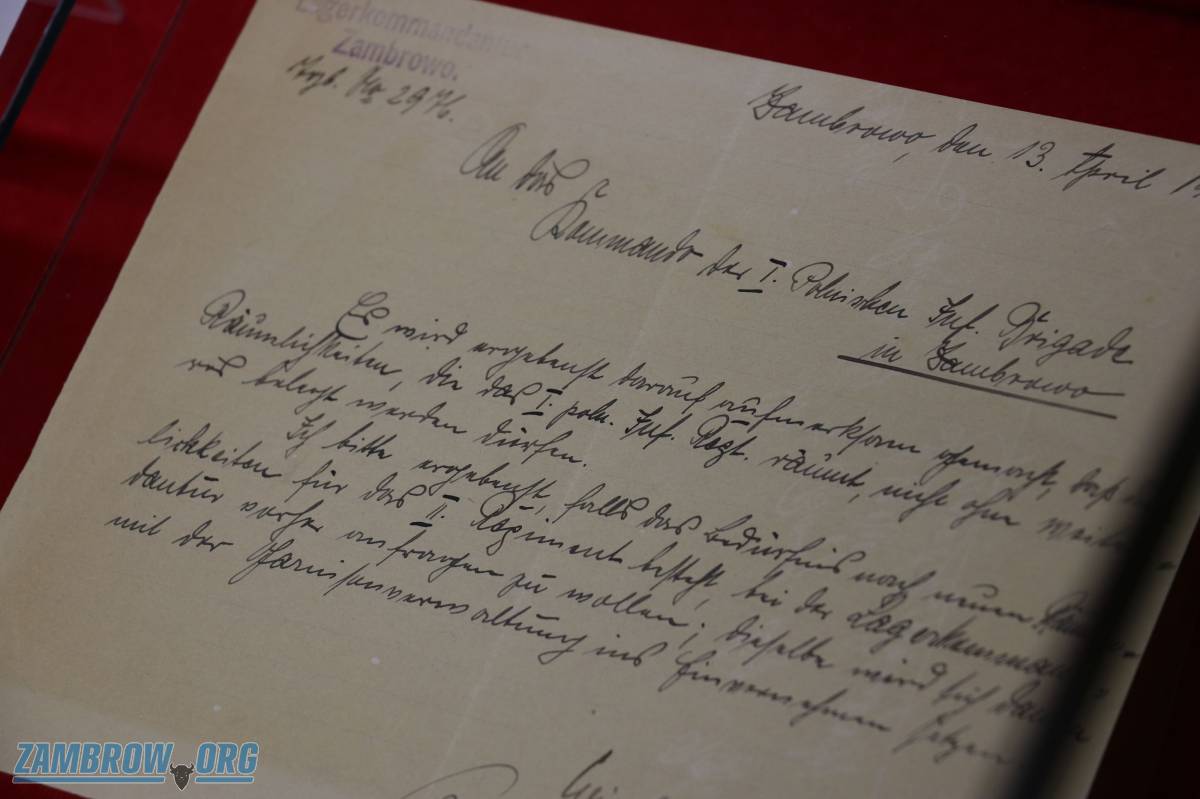 Lagerkommandantur
Zambrowo.
Zambrowo, den 13. April 1
Tagb. No 2976.
An das
Kommando der I. Polnischen Inf. Brigade
in Zambrowo
Es wird ergebenst darauf aufmerksam gemacht, daß
Räumlichkeiten, die das I. poln. Inf. Regt. räumt, nicht ohne weite
res belegt werden dürfen.
Ich bitte ergebenst, falls das Bedürfnis nach neuen Räum-
lichkeiten für das II. Regiment besteht, bei der Lagerkomman-
dantur vorher anfragen zu wollen; dieselbe wird sich dann
mit der Garnisonverwaltung ins Einvernehmen setzen
ZAMBROW.ORG